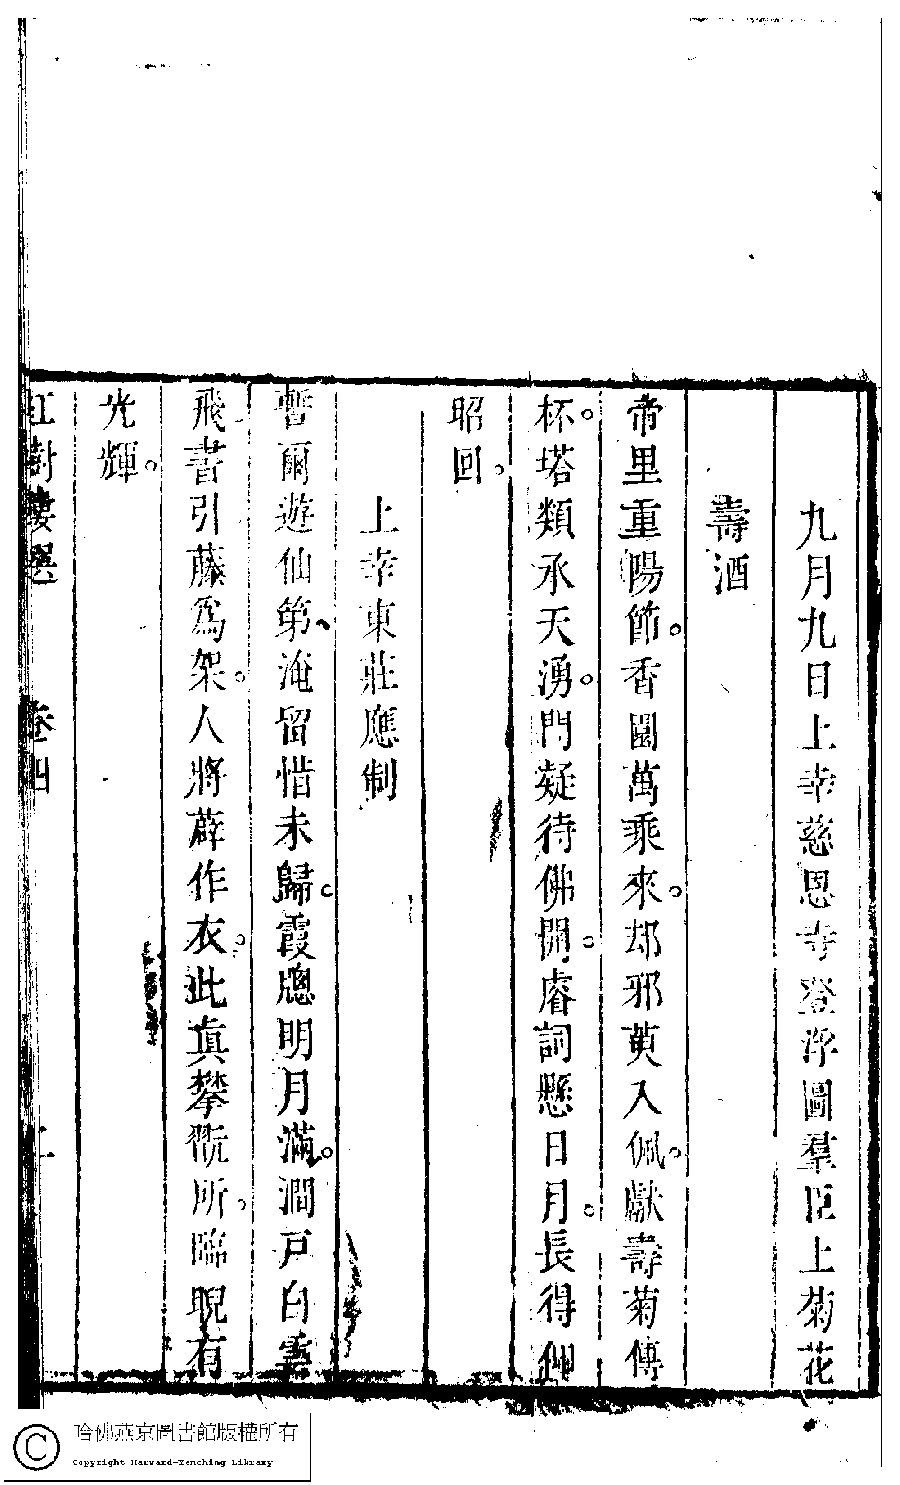 九月九日上幸慈恩寺登浮圖羣臣上菊花
壽酒
帝里重陽節。香園萬乘來。却邪萸入佩。獻壽菊傳
杯。塔類承天湧。門疑待佛開。睿詞懸日月。長得仰
昭回。
上幸東莊應制
暫爾遊仙第、淹留惜未歸。霞牕明月滿。澗戸白雲
飛。書引藤爲架。人將薜作衣。此真攀翫所。臨睨有
光輝。
紅樹樓選 卷四
哈佛燕京圖書館版權所有
Copyright Harvard-Yenching Library